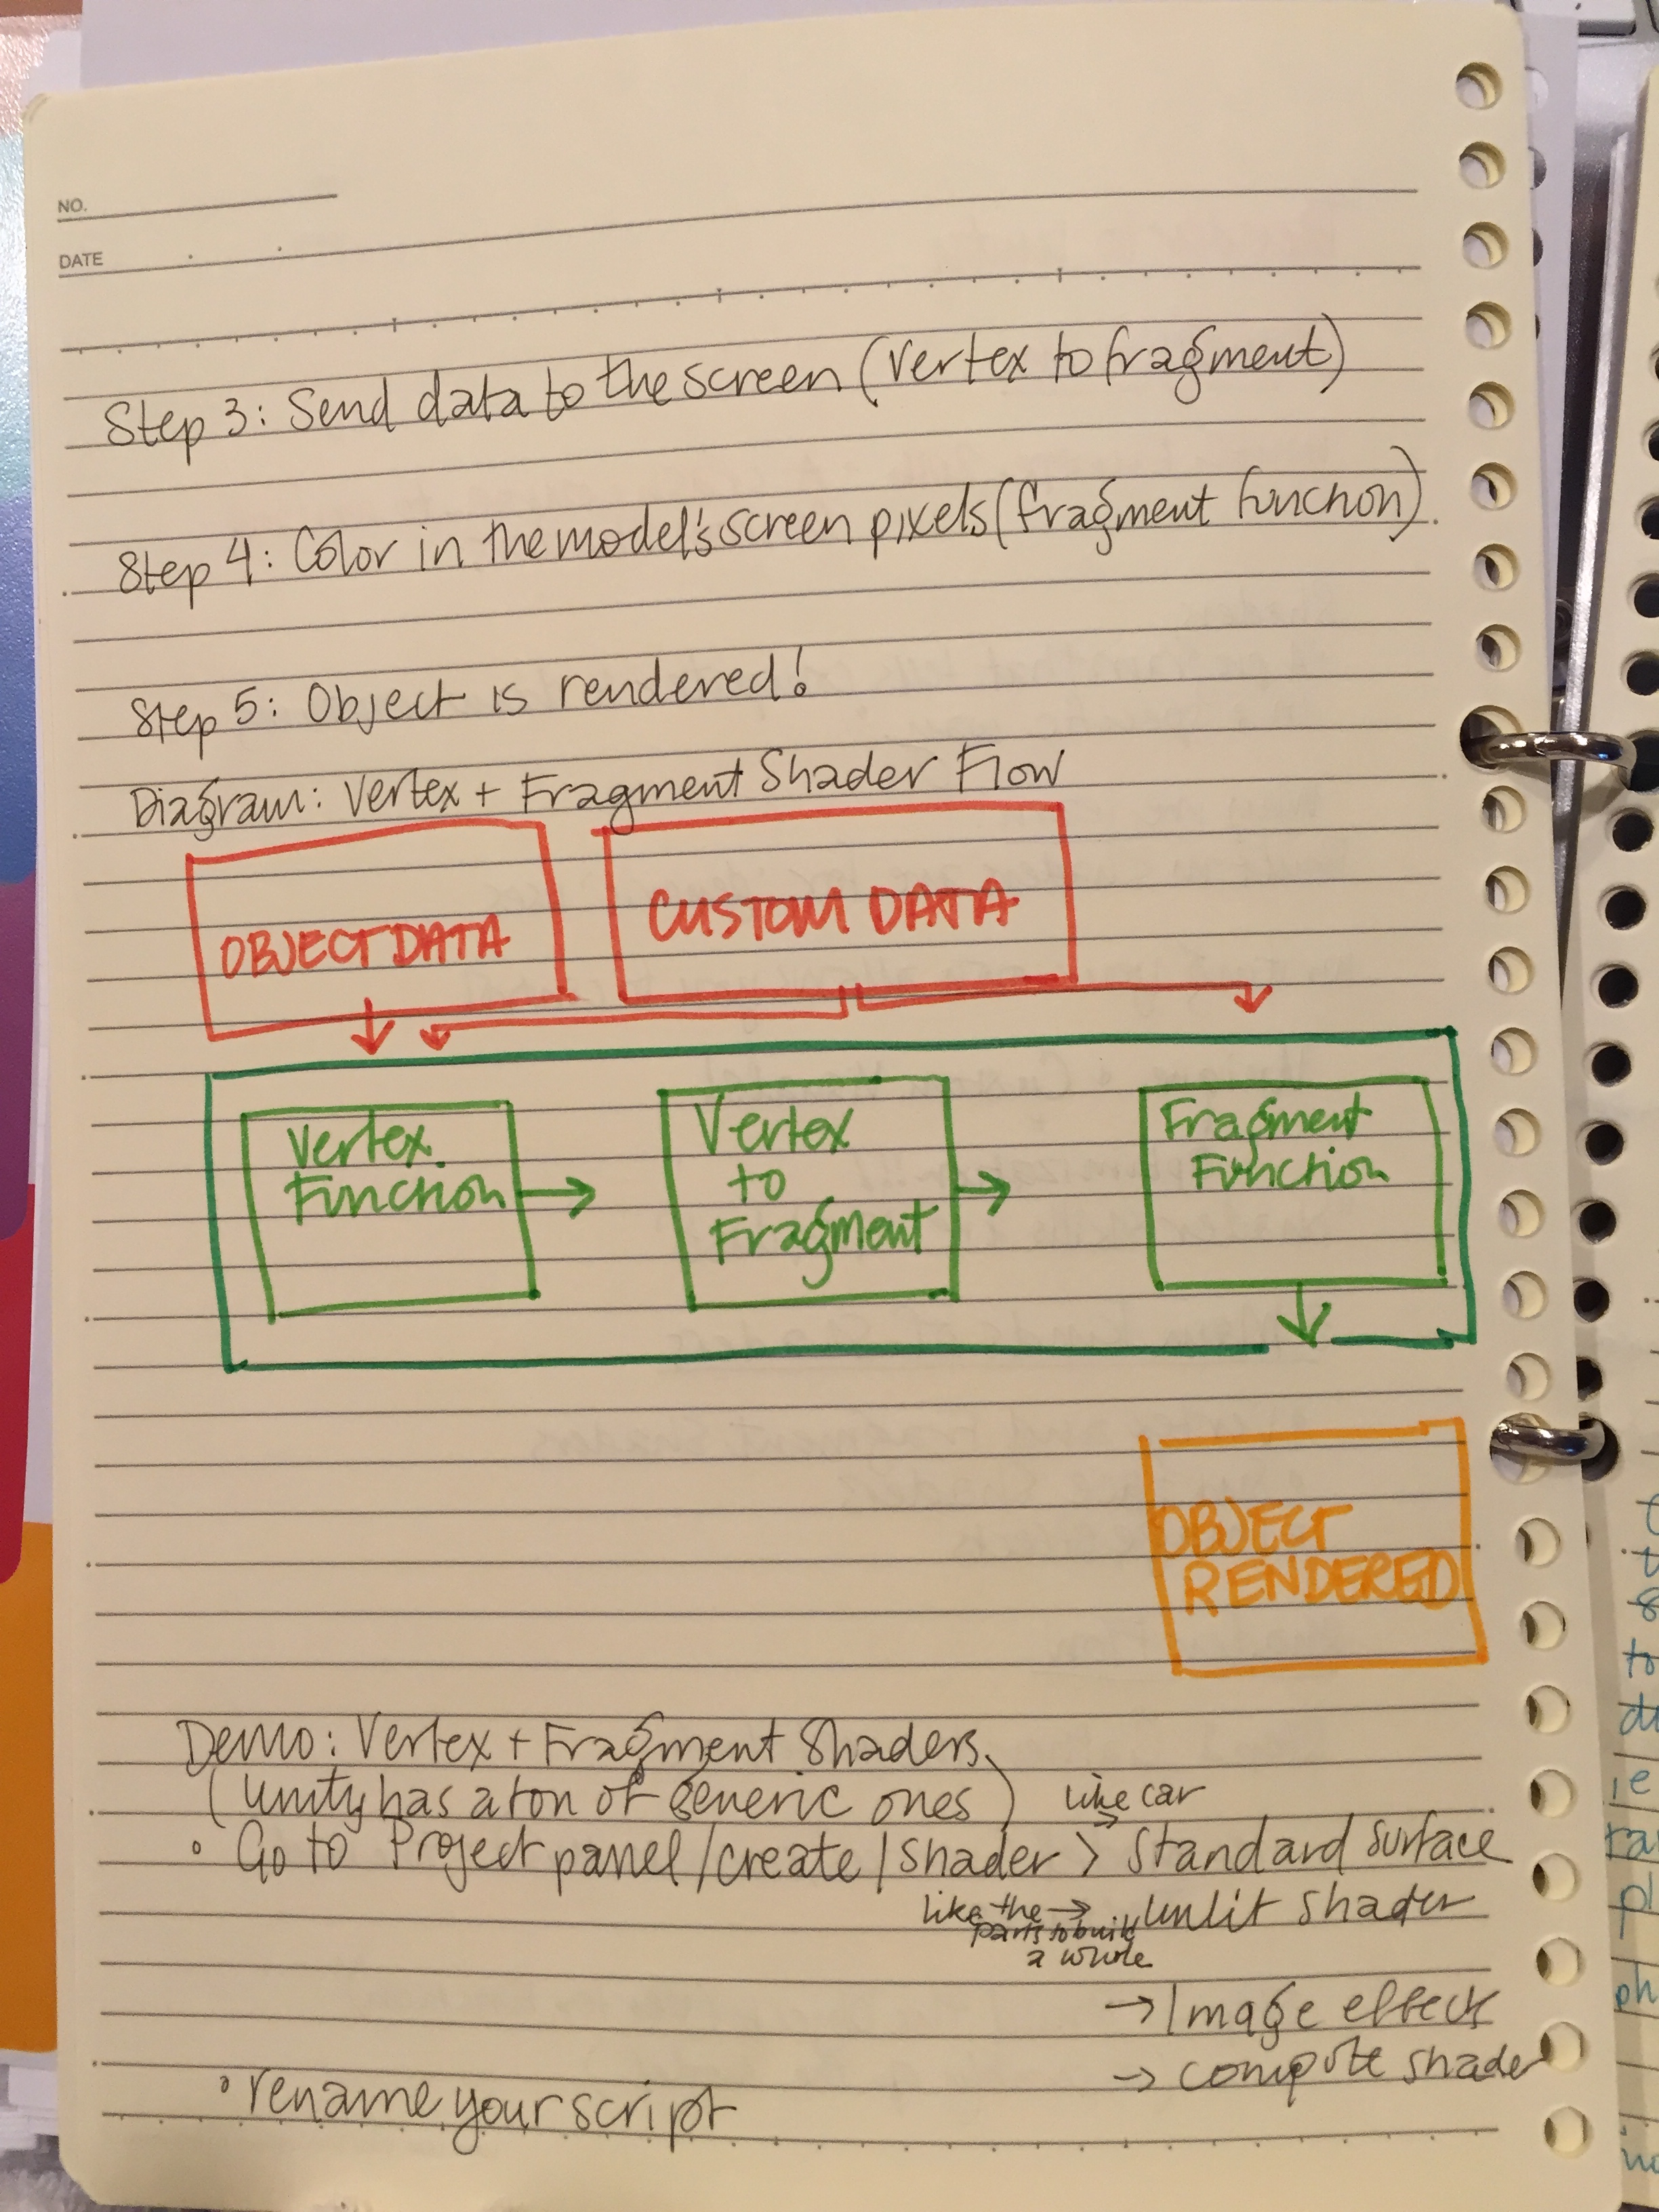 NO.
DATE
Step 3: Send data to the screen (vertex to fragment)
Step 4: Color in the model's screen pixels (fragment function).
Step 5: Object is rendered!
Diagram: Vertex + Fragment Shader Flow
OBJECT DATA
CUSTOM DATA
Vertex
Function
Vertex
to
Fragment
Fragment
Function
OBJECT
RENDERED
Demo: Vertex + Fragment Shaders
(Unity has a ton of generic ones)
like car →
• Go to Project panel / create / shader > Standard Surface
like the → unlit shader
parts to build
a whole
→ Image effect
→ compute shader
• rename your script
to
ie
ph